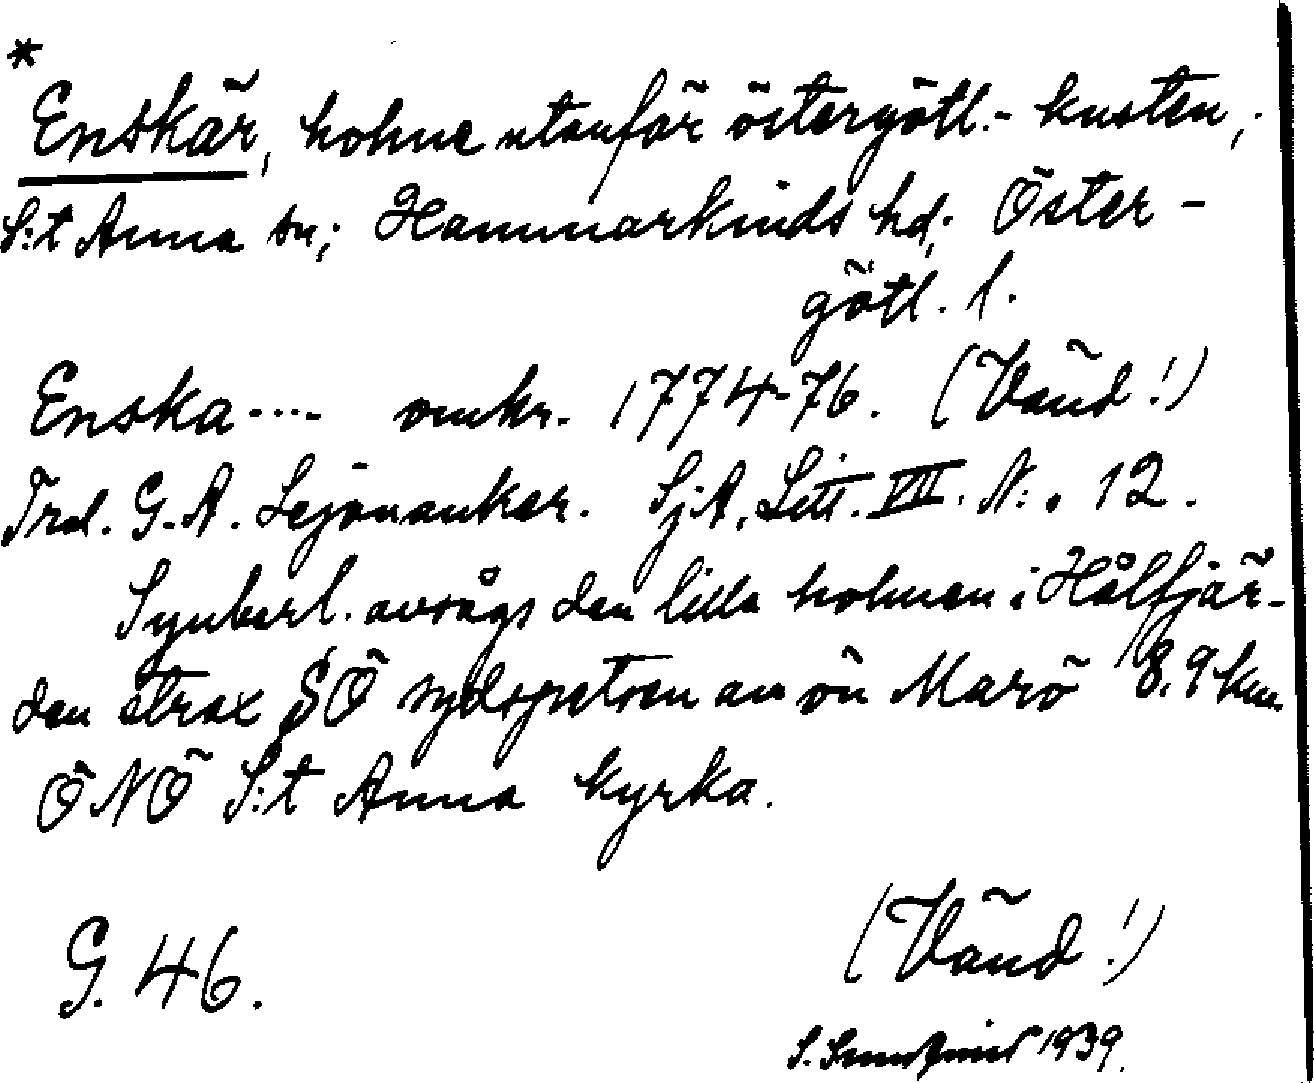 *
Enskär, holme utanför östergötl.- kusten,
S:t Anna sn; Hammarkinds hd; Öster-
götl. l.
Enska---- omkr. 1774-76. (Vänd!)
Trol. G.A. Lejonanker. SjA. Litt. VII. N:o 12.
Synbarl. avsågs den lilla holmen i Hålfjär-
den strax SÖ sydspetsen av ön Marö 8.9 km
ÖNÖ S:t Anna kyrka.
G. 46.
(Vänd!)
S. 1939.